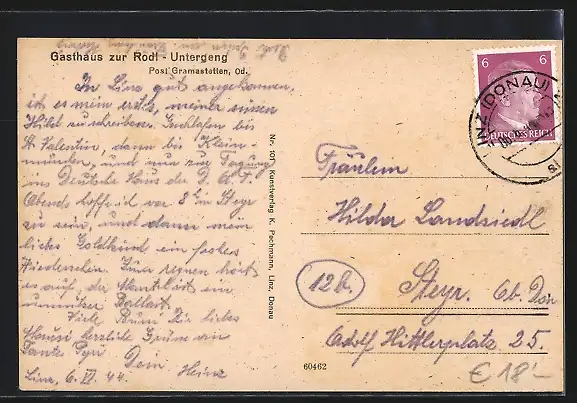 Gasthaus zur Rodl - Untergeng
Post Gramastetten, Od.
In Linz gut angekommen,
ist es mein erstes, meiner süssen
Hildl zu schreiben. bis
St. Valentin, dann bis Klein-
münchen, und nun zur Tagung
ins Deutsche Haus der D.A.F.
Abends hoffe ich vor 8h in Steyr
zu sein, und dann mein
liebes Goldkind ein frohes
Wiedersehen. regnen hört
es auf, der ist ein
unnützer Ballast.
Viele Bussi Dir liebes
Mausi herzliche Grüsse an
Tante
Dein Heinz
Linz, 6. VI. 44.
Nr. 101 Kunstverlag K. Pachmann, Linz, Donau
6 6
DEUTSCHES REICH
LINZ (DONAU)
Fräulein
Hilda Landsiedl
12b.
Steyr. Ob. Don
Adolf Hittlerplatz 25.
60462
€ 18,-